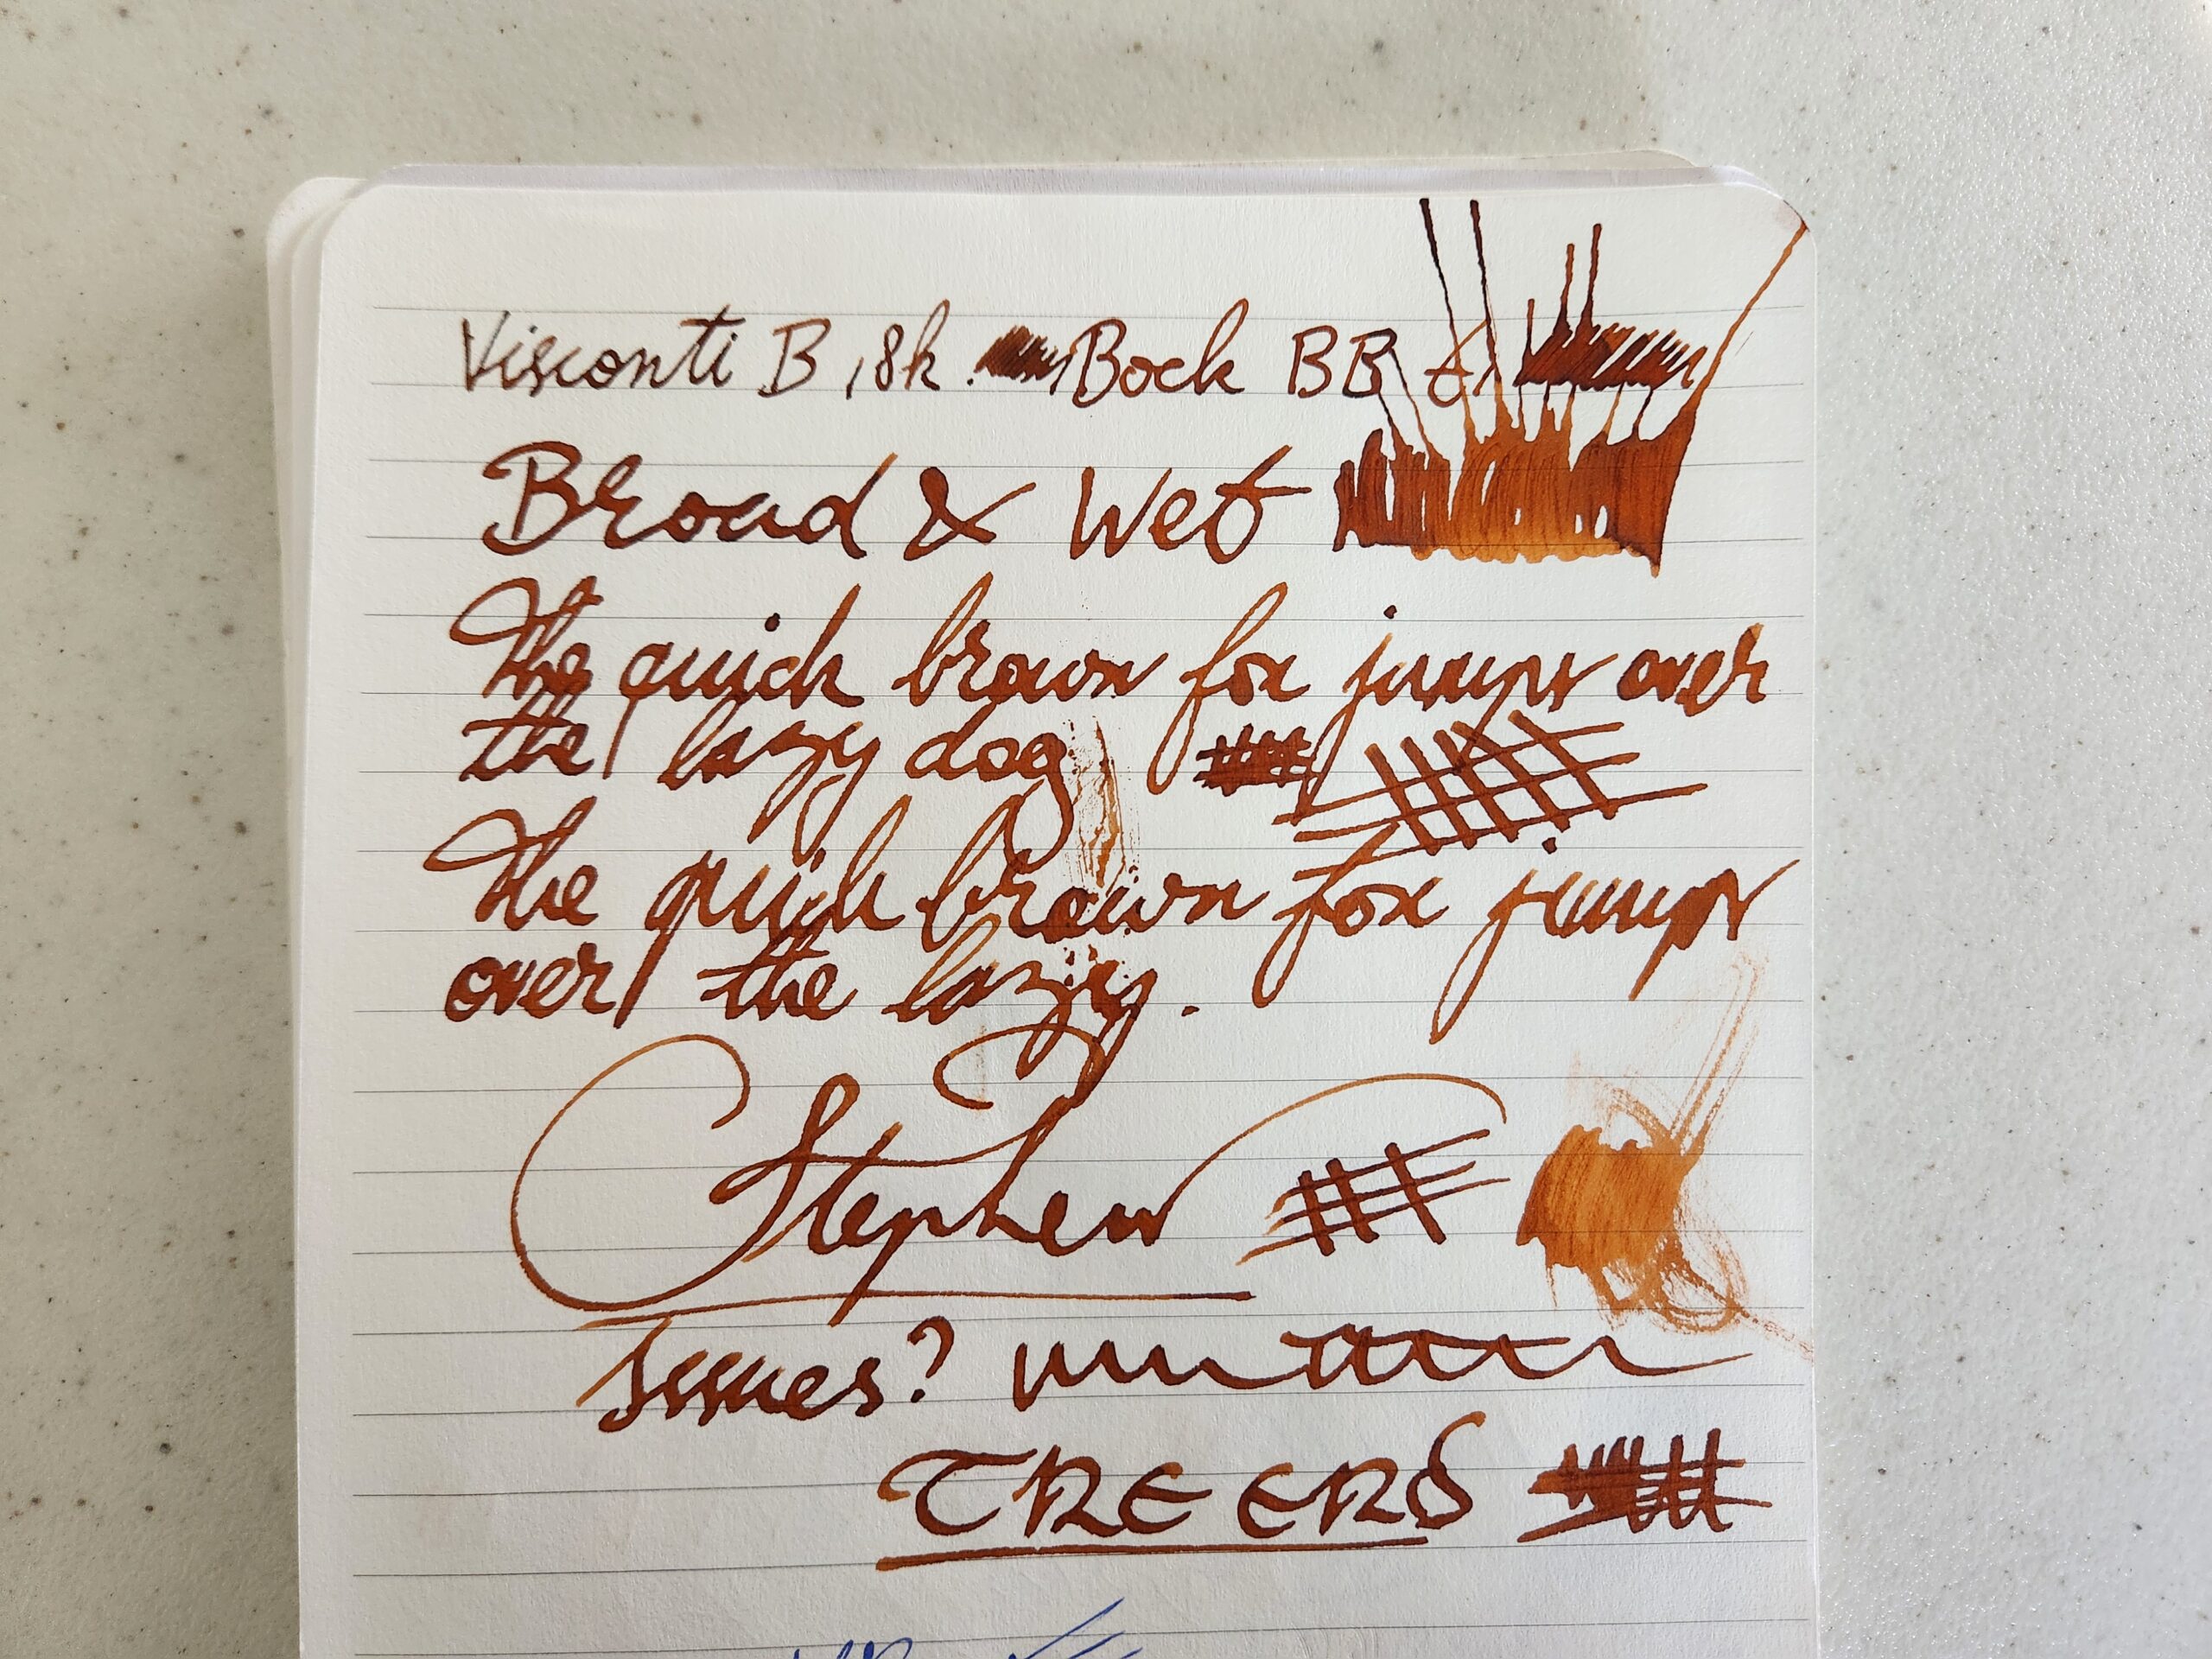 Visconti B 18k. Bock BB
Broad & Wet
The quick brown fox jumps over
the lazy dog
The quick brown fox jumps
over the lazy.
Stephen
Issues?
THE END